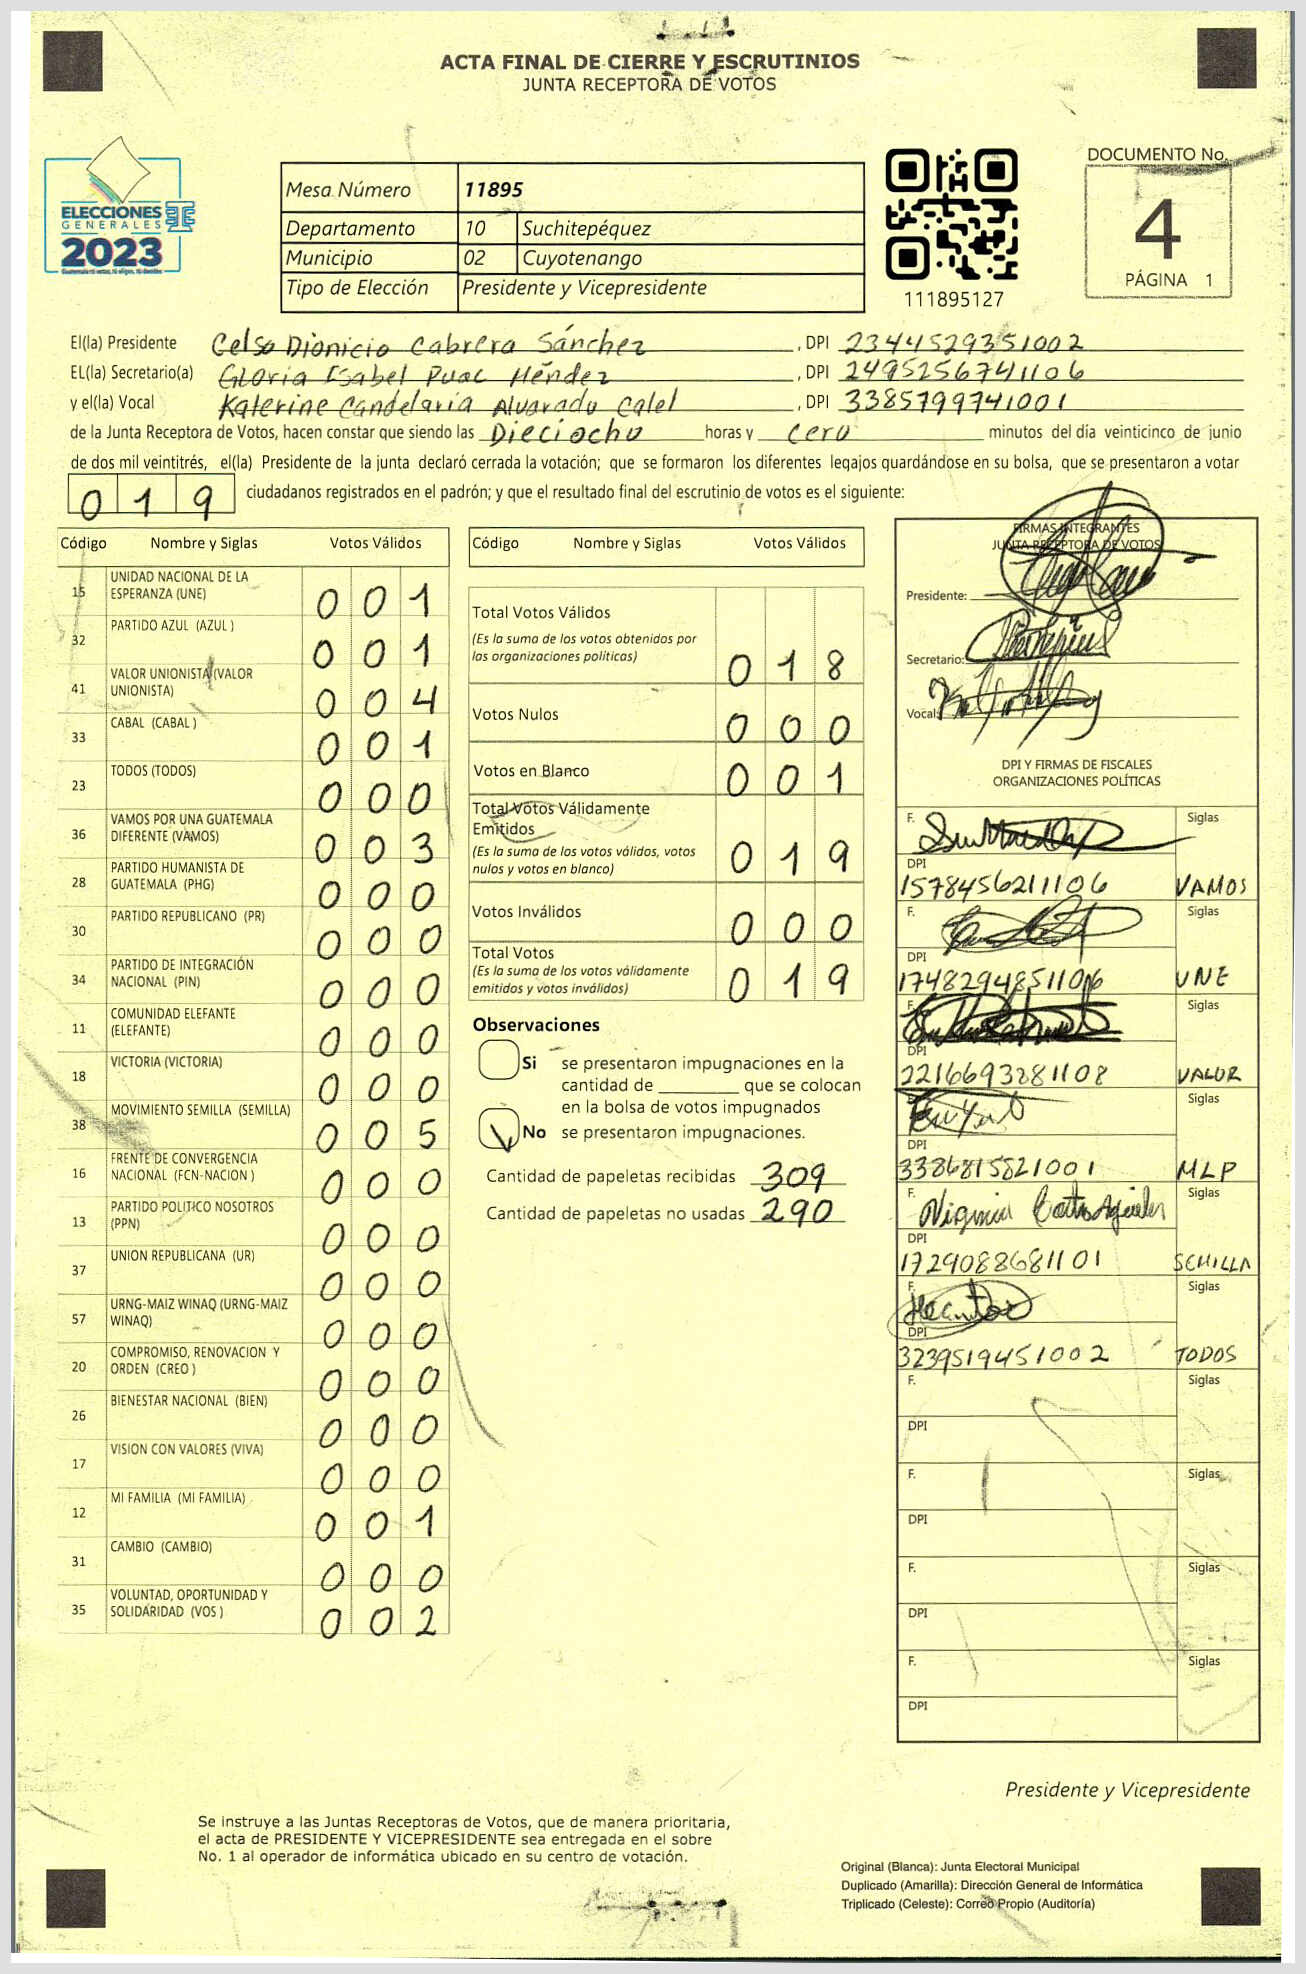 ACTA FINAL DE CIERRE Y ESCRUTINIOS
JUNTA RECEPTORA DE VOTOS
ELECCIONES
GENERALES
2023
Mesa Número 11895
Departamento 10 Suchitepéquez
Municipio 02 Cuyotenango
Tipo de Elección Presidente y Vicepresidente
111895127
DOCUMENTO No.
4
PÁGINA 1
El(la) Presidente Celso Dionicio Cabrera Sánchez , DPI 2344529351002
EL(la) Secretario(a) Gloria Isabel Puac Méndez , DPI 2495256741106
y el(la) Vocal Katerine Candelaria Alvarado Calel , DPI 3385799741001
de la Junta Receptora de Votos, hacen constar que siendo las Dieciocho horas y cero minutos del día veinticinco de junio
de dos mil veintitrés, el(la) Presidente de la junta declaró cerrada la votación; que se formaron los diferentes legajos guardándose en su bolsa, que se presentaron a votar
019 ciudadanos registrados en el padrón; y que el resultado final del escrutinio de votos es el siguiente:
Código Nombre y Siglas Votos Válidos
15 UNIDAD NACIONAL DE LA ESPERANZA (UNE) 001
32 PARTIDO AZUL (AZUL ) 001
41 VALOR UNIONISTA (VALOR UNIONISTA) 004
33 CABAL (CABAL ) 001
23 TODOS (TODOS) 000
36 VAMOS POR UNA GUATEMALA DIFERENTE (VAMOS) 003
28 PARTIDO HUMANISTA DE GUATEMALA (PHG) 000
30 PARTIDO REPUBLICANO (PR) 000
34 PARTIDO DE INTEGRACIÓN NACIONAL (PIN) 000
11 COMUNIDAD ELEFANTE (ELEFANTE) 000
18 VICTORIA (VICTORIA) 000
38 MOVIMIENTO SEMILLA (SEMILLA) 005
16 FRENTE DE CONVERGENCIA NACIONAL (FCN-NACION ) 000
13 PARTIDO POLITICO NOSOTROS (PPN) 000
37 UNION REPUBLICANA (UR) 000
57 URNG-MAIZ WINAQ (URNG-MAIZ WINAQ) 000
20 COMPROMISO, RENOVACION Y ORDEN (CREO ) 000
26 BIENESTAR NACIONAL (BIEN) 000
17 VISION CON VALORES (VIVA) 000
12 MI FAMILIA (MI FAMILIA) 001
31 CAMBIO (CAMBIO) 000
35 VOLUNTAD, OPORTUNIDAD Y SOLIDARIDAD (VOS ) 002
Código Nombre y Siglas Votos Válidos
Total Votos Válidos
(Es la suma de los votos obtenidos por
las organizaciones políticas) 018
Votos Nulos 000
Votos en Blanco 001
Total Votos Válidamente
Emitidos
(Es la suma de los votos válidos, votos
nulos y votos en blanco) 019
Votos Inválidos 000
Total Votos
(Es la suma de los votos válidamente
emitidos y votos inválidos) 019
Observaciones
Si se presentaron impugnaciones en la
cantidad de ________ que se colocan
en la bolsa de votos impugnados
No se presentaron impugnaciones.
Cantidad de papeletas recibidas 309
Cantidad de papeletas no usadas 290
FIRMAS INTEGRANTES
JUNTA RECEPTORA DE VOTOS
Presidente:
Secretario:
Vocal:
DPI Y FIRMAS DE FISCALES
ORGANIZACIONES POLÍTICAS
F. Siglas
DPI
1578456211106 VAMOS
F. Siglas
DPI
1748294851106 UNE
F. Siglas
DPI
2216693281108 VALOR
Siglas
DPI
3386815821001 MLP
F. Virginia Siglas
DPI
1729088681101 SEMILLA
F. Siglas
DPI
3239519451002 TODOS
F. Siglas
DPI
F. Siglas
DPI
F. Siglas
DPI
F. Siglas
DPI
Presidente y Vicepresidente
Se instruye a las Juntas Receptoras de Votos, que de manera prioritaria,
el acta de PRESIDENTE Y VICEPRESIDENTE sea entregada en el sobre
No. 1 al operador de informática ubicado en su centro de votación.
Original (Blanca): Junta Electoral Municipal
Duplicado (Amarilla): Dirección General de Informática
Triplicado (Celeste): Correo Propio (Auditoría)